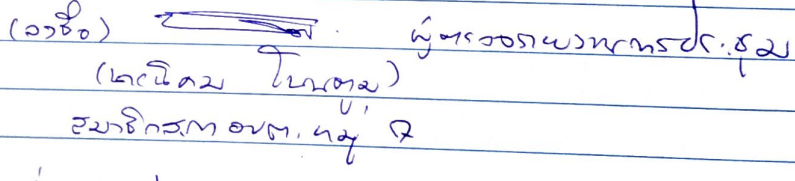 (ลงชื่อ) ผู้ตรวจรายงานการประชุม
(นายนิคม โนนตูม)
สมาชิกสภา อบต. หมู่ ๗